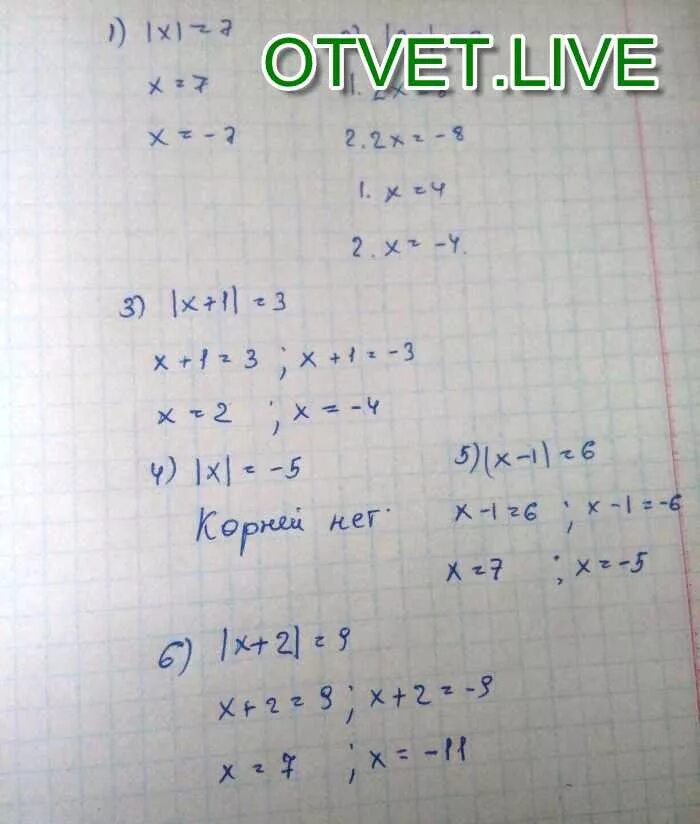 OTVET.LIVE
1) |x| = 7
x = 7
x = -7
1. 2x
2. 2x = -8
1. x = 4
2. x = -4.
3) |x+1| = 3
x+1 = 3 ; x+1 = -3
x = 2 ; x = -4
4) |x| = -5
Корней нет.
5) |x-1| = 6
x-1=6 ; x-1=-6
x=7 ; x=-5
6) |x+2| = 9
x+2=9 ; x+2=-9
x = 7 ; x = -11